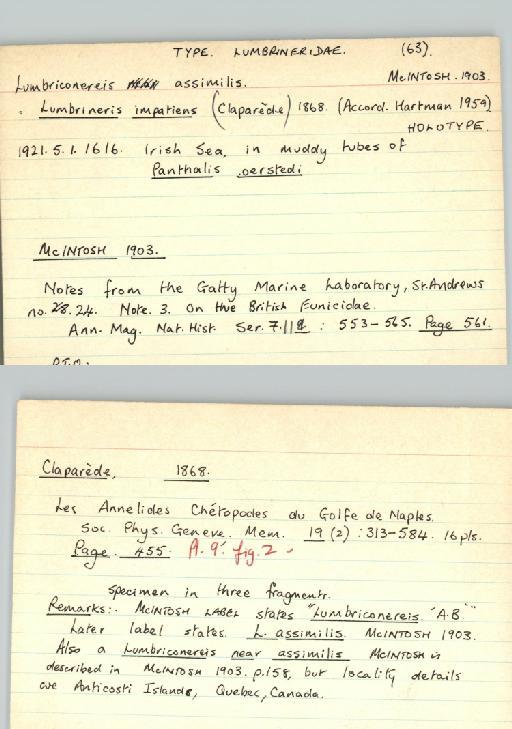 TYPE. LUMBRINERIDAE. (63).
Lumbriconereis assimilis. McINTOSH. 1903.
Lumbrineris impatiens (Claparède) 1868. (Accord. Hartman 1959)
HOLOTYPE.
1921. 5. 1. 1616. Irish Sea, in muddy tubes of
Panthalis oerstedi
McINTOSH 1903.
Notes from the Gatty Marine Laboratory, St. Andrews
no. 24. Note. 3. On the British Eunicidae.
Ann. Mag. Nat. Hist. Ser. 7. : 553-565. Page 561.
P.T.O.
Claparède, 1868.
Les Annelides Chétopodes du Golfe de Naples.
Soc. Phys. Geneve. Mem. 19 (2) : 313-584. 16 pls.
Page. 455. fig. 2
Specimen in three fragments.
Remarks:- McINTOSH LABEL states "Lumbriconereis 'A.B.'"
Later label states. L. assimilis McINTOSH 1903.
Also a Lumbriconereis near assimilis McINTOSH is
described in McINTOSH 1903. p.158, but locality details
are Anticosti Islands, Quebec, Canada.